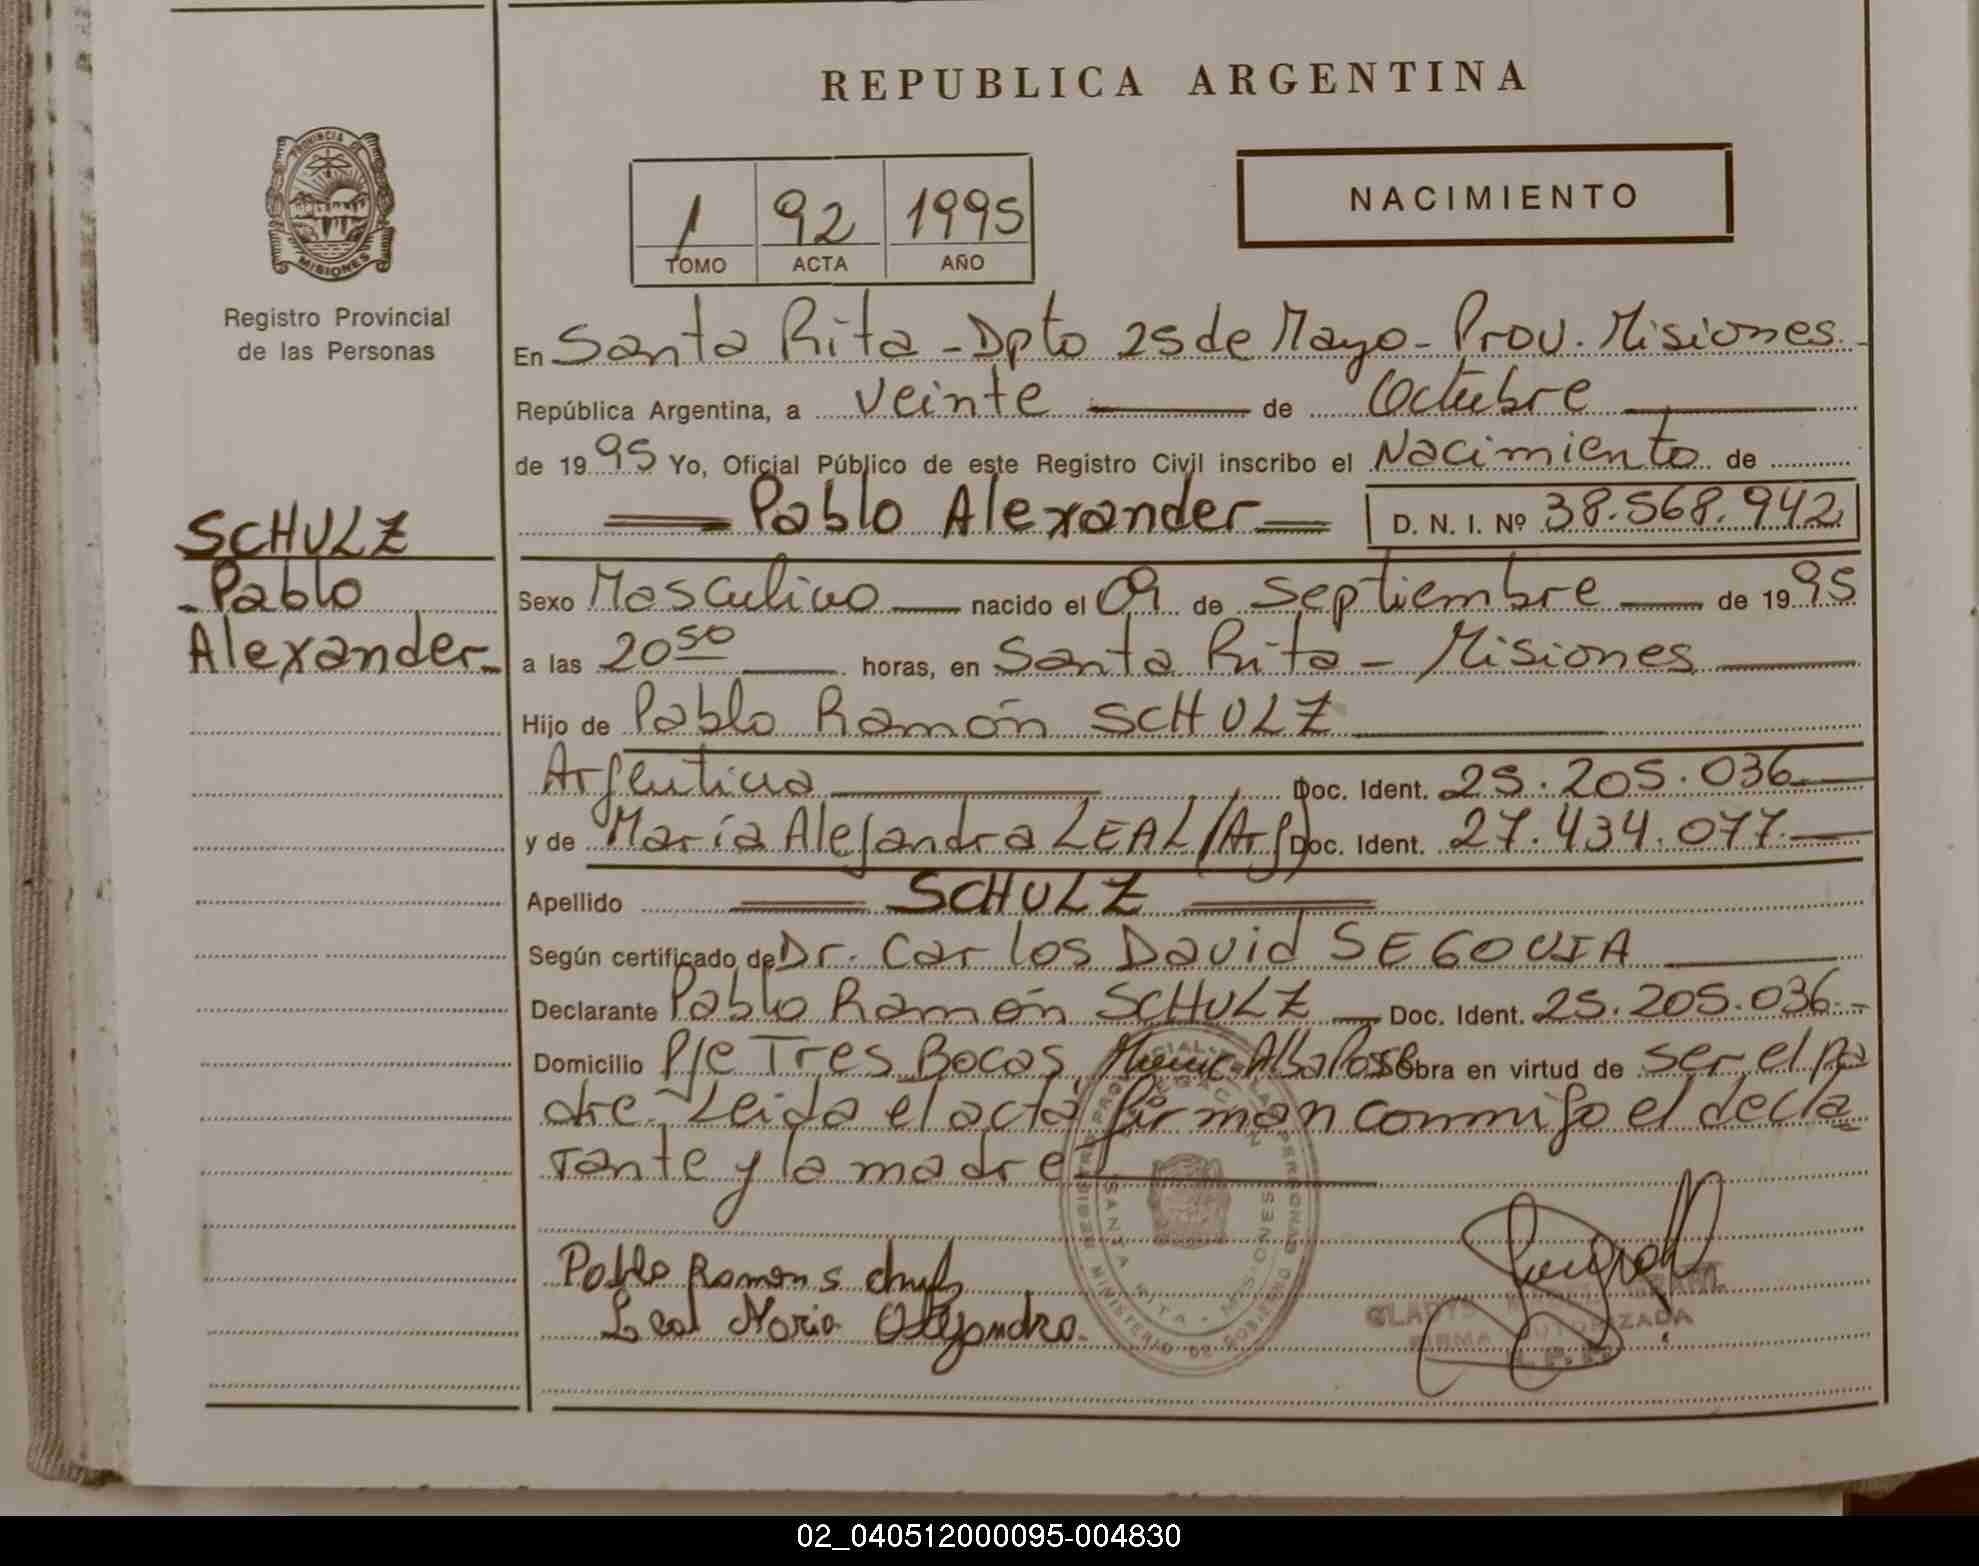 REPUBLICA ARGENTINA
PROVINCIA DE
MISIONES
Registro Provincial
de las Personas
1 92 1995
TOMO ACTA AÑO
NACIMIENTO
En Santa Rita - Dpto 25 de Mayo - Prov. Misiones.-
República Argentina, a veinte de Octubre
de 1995 Yo, Oficial Público de este Registro Civil inscribo el Nacimiento de
Pablo Alexander D. N. I. Nº 38.568.942
SCHULZ
- Pablo
Alexander-
Sexo Masculino nacido el 09 de Septiembre de 1995
a las 20 50 horas, en Santa Rita - Misiones
Hijo de Pablo Ramón SCHULZ
Argentina Doc. Ident. 25.205.036
y de María Alejandra LEAL/Arg) Doc. Ident. 27.434.077
Apellido SCHULZ
Según certificado de Dr. Carlos David SEGOVIA
Declarante Pablo Ramón SCHULZ Doc. Ident. 25.205.036.-
Domicilio Pje Tres Bocas, Obra en virtud de ser el pa
dre.- Leida el acta firman conmigo el decla
rante y la madre
Pablo Ramon Schulz
Leal Maria Alejandra.
SANTA RITA - MISIONES
MINISTERIO DE GOBIERNO
GLADYS
FIRMA AUTORIZADA
02_040512000095-004830